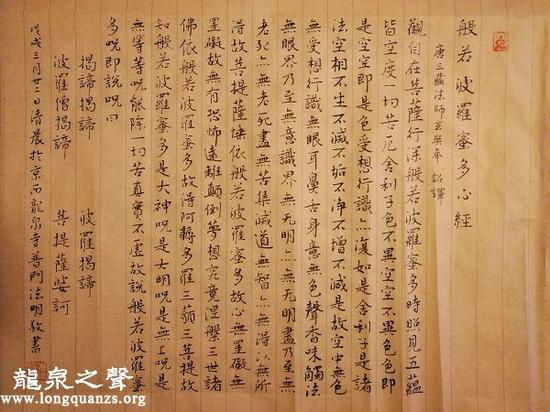 般若波羅蜜多心經
唐三藏法師玄奘奉 詔譯
觀自在菩薩行深般若波羅蜜多時照見五蘊
皆空度一切苦厄舍利子色不異空空不異色色即
是空空即是色受想行識亦復如是舍利子是諸
法空相不生不滅不垢不淨不增不減是故空中無色
無受想行識無眼耳鼻舌身意無色聲香味觸法
無眼界乃至無意識界無無明亦無無明盡乃至無
老死亦無老死盡無苦集滅道無智亦無得以無所
得故菩提薩埵依般若波羅蜜多故心無罣礙無
罣礙故無有恐怖遠離顛倒夢想究竟涅槃三世諸
佛依般若波羅蜜多故得阿耨多羅三藐三菩提故
知般若波羅蜜多是大神呪是大明呪是無上呪是
無等等呪能除一切苦真實不虛故說般若波羅蜜
多呪即說呪曰
揭諦揭諦 波羅揭諦
波羅僧揭諦 菩提薩婆訶
戊戌三月廿二日清晨於京西龍泉寺普門法明敬書
龍泉之聲
www.longquanzs.org